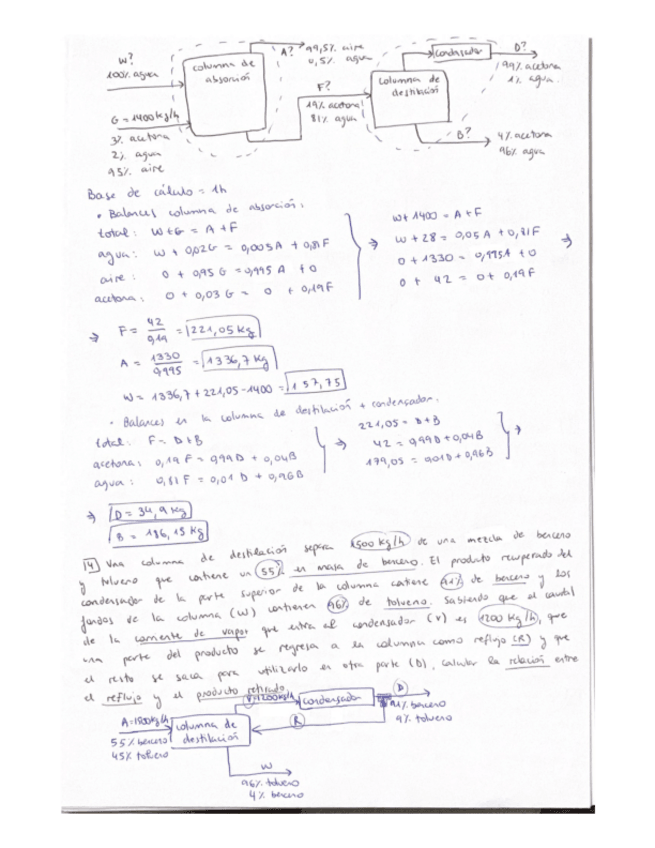 W?
100% agua
columna de
absorción
A? 99,5% aire
0,5% agua
G = 1400 kg/h
3% acetona
2% agua
95% aire
F?
19% acetona
81% agua
condensador
D?
99% acetona
1% agua
columna de
destilación
B?
4% acetona
96% agua
Base de cálculo = 1h
• Balances columna de absorción:
total: W+G = A+F
agua: W + 0,02G = 0,005A + 0,81F
aire: 0 + 0,95G = 0,995A + 0
acetona: 0 + 0,03G = 0 + 0,19F
⇒
W + 1400 = A+F
W + 28 = 0,05A + 0,81F
0 + 1330 = 0,995A + 0
0 + 42 = 0 + 0,19F
⇒
⇒ F = 42/0,19 = 221,05 kg
A = 1330/0,995 = 1336,7 kg
W = 1336,7 + 221,05 - 1400 = 157,75
• Balances en la columna de destilación + condensador.
total: F = D+B
acetona: 0,19F = 0,99D + 0,04B
agua: 0,81F = 0,01D + 0,96B
⇒
221,05 = D+B
42 = 0,99D + 0,04B
179,05 = 0,01D + 0,96B
⇒
⇒ D = 34,9 kg
B = 186,15 kg
14 Una columna de destilación separa 1500 kg/h de una mezcla de benceno
y tolueno que contiene un 55% en masa de benceno. El producto recuperado del
condensador de la parte superior de la columna contiene 91% de benceno y los
fondos de la columna (W) contienen 96% de tolueno. Sabiendo que el caudal
de la corriente de vapor que entra al condensador (V) es 1200 kg/h, que
una parte del producto se regresa a la columna como reflujo (R) y que
el resto se saca para utilizarlo en otra parte (D), calcular la relación entre
el reflujo y el producto retirado.
V=1200kg/h
condensador
D
91% benceno
9% tolueno
R
columna de
destilación
55% benceno
45% tolueno
W
96% tolueno
4% benceno